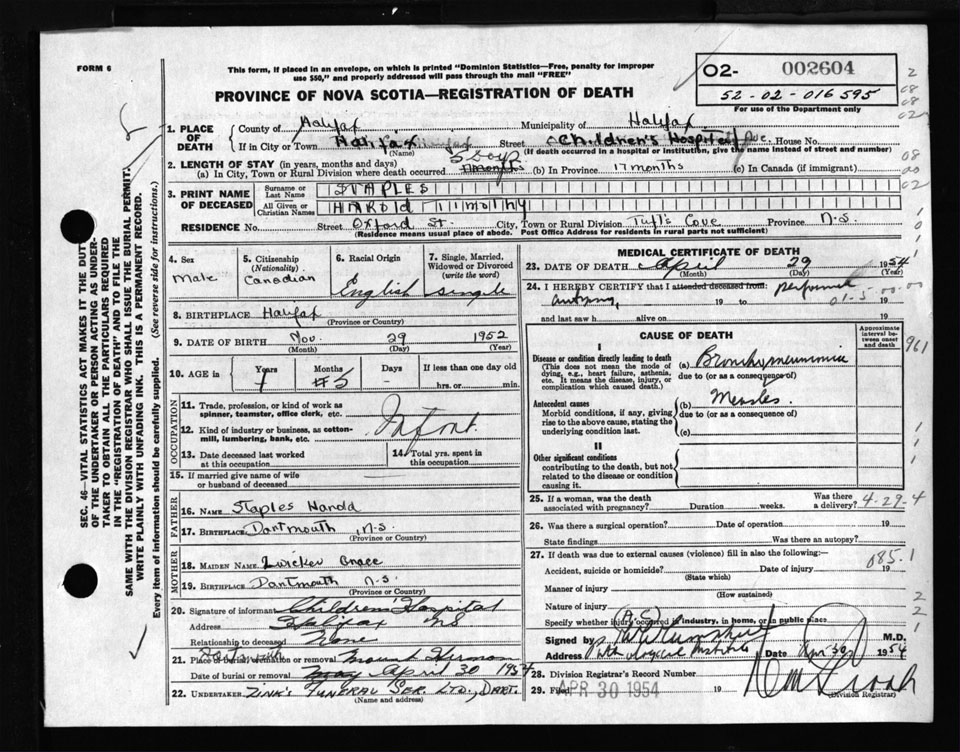 FORM 6
This form, if placed in an envelope, on which is printed "Dominion Statistics—Free, penalty for improper
use $50," and properly addressed will pass through the mail "FREE"
PROVINCE OF NOVA SCOTIA—REGISTRATION OF DEATH
O2- 002604
52-02-016595
For use of the Department only
SEC. 46—VITAL STATISTICS ACT MAKES IT THE DUTY
OF THE UNDERTAKER OR PERSON ACTING AS UNDER-
TAKER TO OBTAIN ALL THE PARTICULARS REQUIRED
IN THE "REGISTRATION OF DEATH" AND TO FILE THE
SAME WITH THE DIVISION REGISTRAR WHO SHALL ISSUE THE BURIAL PERMIT.
WRITE PLAINLY WITH UNFADING INK. THIS IS A PERMANENT RECORD.
Every item of information should be carefully supplied. (See reverse side for instructions.)
1. PLACE OF DEATH
County of Halifax Municipality of Halifax
If in City or Town Halifax Street Children's Hospital Ave. House No.
(Name) (If death occurred in a hospital or institution, give the name instead of street and number)
2. LENGTH OF STAY (in years, months and days)
(a) In City, Town or Rural Division where death occurred 5 days (b) In Province 17 months (c) In Canada (if immigrant)
3. PRINT NAME OF DECEASED
Surname or Last Name STAPLES
All Given or Christian Names HAROLD TIMOTHY
RESIDENCE No. Street Oxford St. City, Town or Rural Division Tuft's Cove Province N.S.
(Residence means usual place of abode. Post Office Address for residents in rural parts not sufficient)
4. Sex Male
5. Citizenship (Nationality) Canadian
6. Racial Origin English
7. Single, Married, Widowed or Divorced (write the word) single
8. BIRTHPLACE Halifax
(Province or Country)
9. DATE OF BIRTH Nov. 29 1952
(Month) (Day) (Year)
10. AGE in Years 1 Months 5 Days - If less than one day old
hrs. or min.
OCCUPATION
11. Trade, profession, or kind of work as
spinner, teamster, office clerk, etc. Infant.
12. Kind of industry or business, as cotton-
mill, lumbering, bank, etc.
13. Date deceased last worked
at this occupation
14. Total yrs. spent in
this occupation
15. If married give name of wife
or husband of deceased
FATHER
16. NAME Staples Harold
17. BIRTHPLACE Dartmouth, N.S.
(Province or Country)
MOTHER
18. MAIDEN NAME Zwicker Grace
19. BIRTHPLACE Dartmouth N.S.
(Province or Country)
20. Signature of informant Children's Hospital
Address Halifax NS
Relationship to deceased None
21. Place of burial, cremation or removal Mount Hermon
Dartmouth
Date of burial or removal May April 30 1954
22. UNDERTAKER ZINK'S FUNERAL SER. LTD., DART.
(Name and address)
MEDICAL CERTIFICATE OF DEATH
23. DATE OF DEATH April 29 1954
(Month) (Day) (Year)
24. I HEREBY CERTIFY that I attended deceased from: performed
autopsy 19 to 01-5-00-00 19
and last saw h alive on 19
CAUSE OF DEATH
Approximate interval between onset and death
I
Disease or condition directly leading to death
(This does not mean the mode of
dying, e.g., heart failure, asthenia,
etc. It means the disease, injury, or
complication which caused death.)
(a) Bronchopneumonia
due to (or as a consequence of)
Antecedent causes
Morbid conditions, if any, giving
rise to the above cause, stating the
underlying condition last.
(b) Measles.
due to (or as a consequence of)
(c)
II
Other significant conditions
contributing to the death, but not
related to the disease or condition
causing it.
25. If a woman, was the death
associated with pregnancy? Duration weeks. Was there a delivery? 4-29-4
26. Was there a surgical operation? Date of operation 19
State findings Was there an autopsy?
27. If death was due to external causes (violence) fill in also the following:—
Accident, suicide or homicide? Date of injury 19
(State which) 085.1
Manner of injury
(How sustained)
Nature of injury
Specify whether injury occurred in industry, in home, or in public place
Signed by M.D.
Address Pathological Institute Date Apr 30 1954
28. Division Registrar's Record Number
29. Filed APR 30 1954
(Division Registrar)